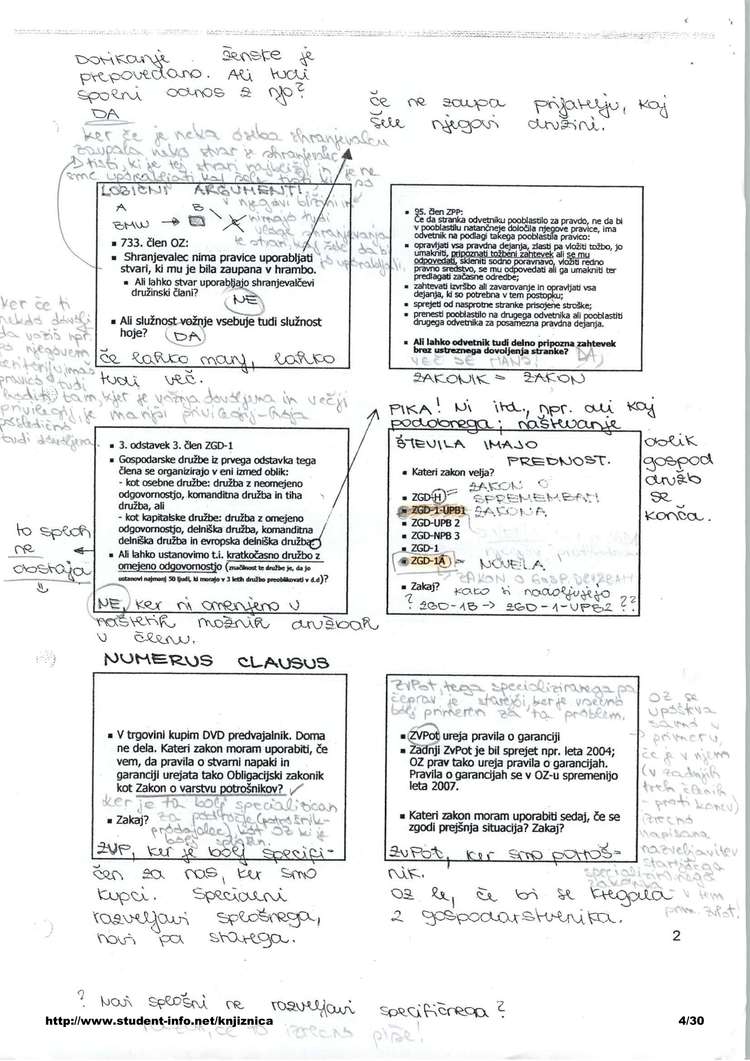 DORIKANJE ŽENSKE JE
PREPOVEDANO. ALI TUDI
SPOLNI ODNOS Z NJO?
DA
ČE NE ZAUPA PRIJATELJU, KAJ
ŠELE NJEGOVI DRUŽINI.
KER ČE JE NEKA OSEBA SHRANJEVALCU
ZAUPALA NEKO STVAR
LOGIČNI ARGUMENTI
A B
BMW
▪ 733. člen OZ:
▪ Shranjevalec nima pravice uporabljati
stvari, ki mu je bila zaupana v hrambo.
▪ Ali lahko stvar uporabljajo shranjevalčevi
družinski člani?
NE
▪ Ali služnost vožnje vsebuje tudi služnost
hoje?
DA
ČE LAHKO MANJ, LAHKO
TUDI VEČ.
▪ 95. člen ZPP:
Če da stranka odvetniku pooblastilo za pravdo, ne da bi
v pooblastilu natančneje določila njegove pravice, ima
odvetnik na podlagi takega pooblastila pravico:
▪ opravljati vsa pravdna dejanja, zlasti pa vložiti tožbo, jo
umakniti, pripoznati tožbeni zahtevek ali se mu
odpovedati, skleniti sodno poravnavo, vložiti redno
pravno sredstvo, se mu odpovedati ali ga umakniti ter
predlagati začasne odredbe;
▪ zahtevati izvršbo ali zavarovanje in opravljati vsa
dejanja, ki so potrebna v tem postopku;
▪ sprejeti od nasprotne stranke prisojene stroške;
▪ prenesti pooblastilo na drugega odvetnika ali pooblastiti
drugega odvetnika za posamezna pravdna dejanja.
▪ Ali lahko odvetnik tudi delno pripozna zahtevek
brez ustreznega dovoljenja stranke?
DA,
VEČ SE MANJ!
ZAKONIK = ZAKON
KER ČE TI
NEKDO DOVOLI
DA VOZIŠ NPR.
PO NJEGOVEM
TAM, KJER JE VOŽNJA DOVOLJENA IN VEČJI
PRIVILEGIJ, JE MANJŠI PRIVILEGIJ-HOJA
POSLEDIČNO
TUDI DOVOLJENA
PIKA! NI ITD., NPR. ALI KAJ
PODOBNEGA; NAŠTEVANJE
▪ 3. odstavek 3. člen ZGD-1
▪ Gospodarske družbe iz prvega odstavka tega
člena se organizirajo v eni izmed oblik:
- kot osebne družbe: družba z neomejeno
odgovornostjo, komanditna družba in tiha
družba, ali
- kot kapitalske družbe: družba z omejeno
odgovornostjo, delniška družba, komanditna
delniška družba in evropska delniška družba.
▪ Ali lahko ustanovimo t.i. kratkočasno družbo z
omejeno odgovornostjo (značilnost te družbe je, da jo
ustanovi najmanj 50 ljudi, ki morajo v 3 letih družbo preoblikovati v d.d)?
TO SPLOH
NE
OBSTAJA
NE, KER NI OMENJENO V
NAŠTETIH MOŽNIH DRUŽBAH
V ČLENU.
NUMERUS CLAUSUS
ŠTEVILA IMAJO
PREDNOST.
▪ Kateri zakon velja?
ZAKON O
▪ ZGD-H = SPREMEMBAH
▪ ZGD-1-UPB1 ZAKONA
▪ ZGD-UPB 2
▪ ZGD-NPB 3
▪ ZGD-1
▪ ZGD-1A = NOVELA
ZAKON O GOSP. DRUŽBAH
▪ Zakaj? KAKO TI NADALJUJEJO
? ZGD-1B -> ZGD-1-UPB2 ??
OBLIK
GOSPOD
DRUŽB
SE
KONČA.
▪ V trgovini kupim DVD predvajalnik. Doma
ne dela. Kateri zakon moram uporabiti, če
vem, da pravila o stvarni napaki in
garanciji urejata tako Obligacijski zakonik
kot Zakon o varstvu potrošnikov?
KER JE TA BOLJ SPECIALIZIRAN
▪ Zakaj? ZA PODROČJE (POTROŠNIK-
PRODAJALEC) KOT OZ KI JE
BOLJ SPLOŠEN.
ZVP, KER JE BOLJ SPECIFI-
ČEN ZA NAS, KER SMO
KUPCI. SPECIALNI
RAZVELJAVI SPLOŠNEGA,
NOVI PA STAREGA.
ZVPot, TEGA SPECIALIZIRANEGA PA
ČEPRAV JE STAREJŠI, KER JE VSEENO
BOLJ PRIMEREN ZA TA PROBLEM.
▪ ZVPot ureja pravila o garanciji
▪ Zadnji ZvPot je bil sprejet npr. leta 2004;
OZ prav tako ureja pravila o garancijah.
Pravila o garancijah se v OZ-u spremenijo
leta 2007.
▪ Kateri zakon moram uporabiti sedaj, če se
zgodi prejšnja situacija? Zakaj?
ZVPot, KER SMO POTROŠ-
NIK.
OZ LE, ČE BI SE KREGALA
2 GOSPODARSTVENIKA.
OZ SE
UPOŠTEVA
SAMO V
PRIMERU,
ČE JE V NJEM
(V ZADNJIH
TREH ČLENIH
- PROTI KONCU)
IZRECNO
NAPISANA
RAZVELJAVITEV
STAREJŠEGA
SPECIALIZIRANEGA
ZAKONA - V TEM
PRIM. ZVPot!
2
? NOVI SPLOŠNI NE RAZVELJAVI SPECIFIČNEGA?
http://www.student-info.net/knjiznica
ČE TO IZRECNO PIŠE!
4/30